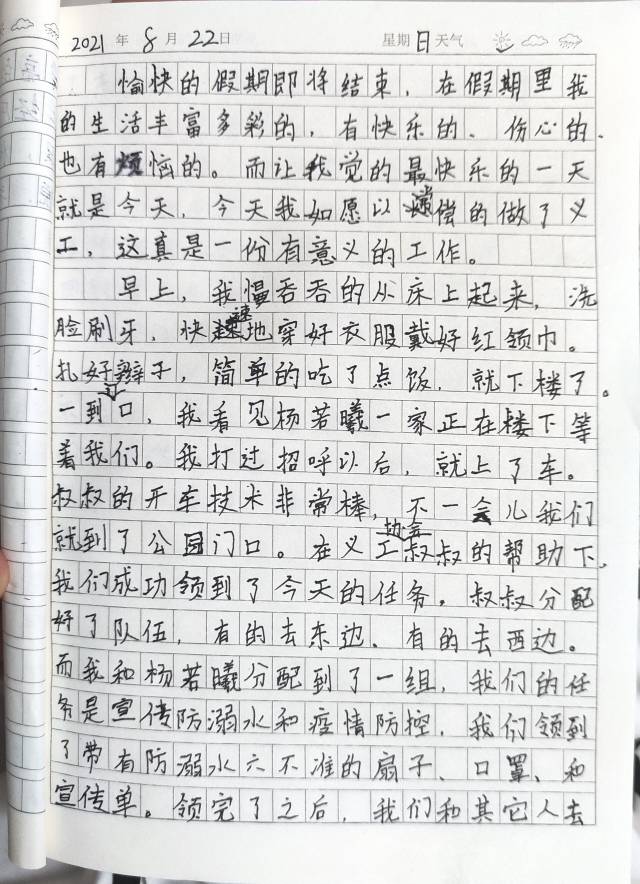 2021年8月22日 星期日天气
愉快的假期即将结束，在假期里我
的生活丰富多彩的，有快乐的、伤心的、
也有烦恼的。而让我觉的最快乐的一天
就是今天，今天我如愿以偿的做了义
工，这真是一份有意义的工作。
早上，我慢吞吞的从床上起来，洗
脸刷牙，快速地穿好衣服戴好红领巾。
扎好辫子，简单的吃了点饭，就下楼了。
一到门口，我看见杨若曦一家正在楼下等
着我们。我打过招呼以后，就上了车。
叔叔的开车技术非常棒，不一会儿我们
就到了公园门口。在义工协会叔叔的帮助下，
我们成功领到了今天的任务。叔叔分配
好了队伍，有的去东边、有的去西边。
而我和杨若曦分配到了一组，我们的任
务是宣传防溺水和疫情防控，我们领到
了带有防溺水六不准的扇子、口罩、和
宣传单。领完了之后，我们和其它人去